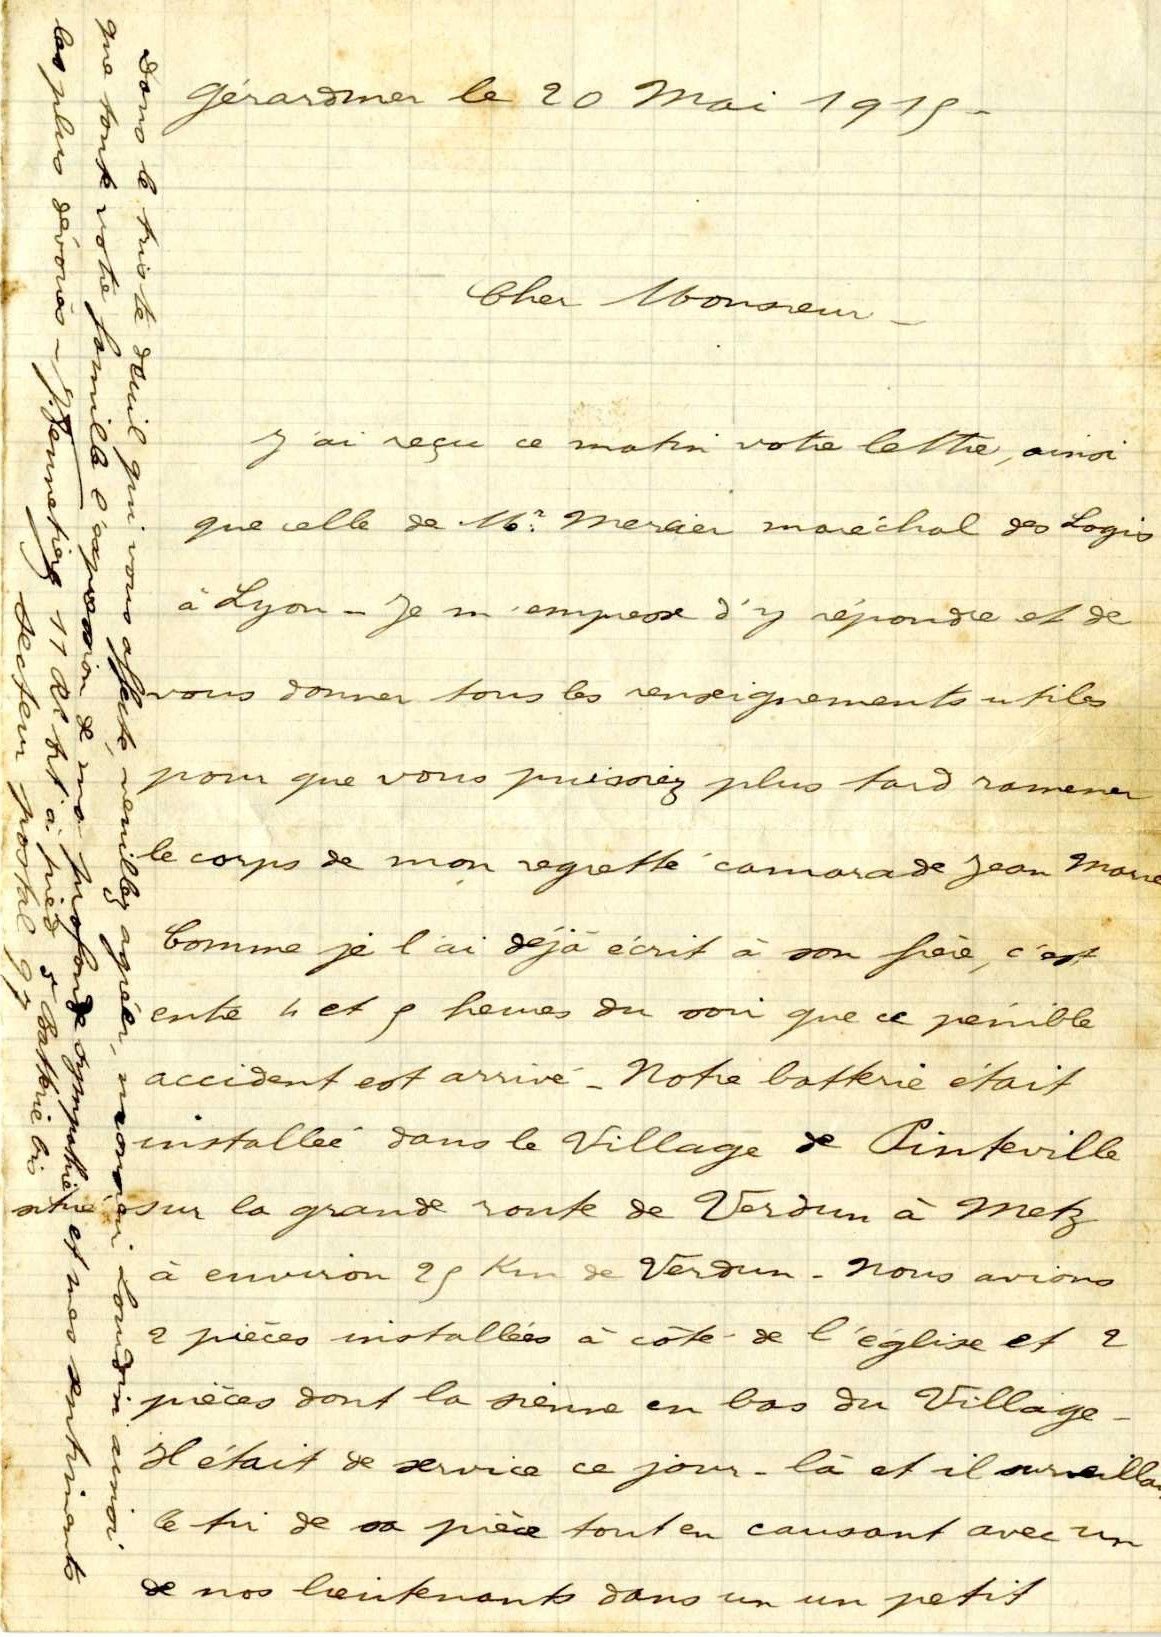 Gérardmer le 20 Mai 1915 -
Cher Monsieur -
J'ai reçu ce matin votre lettre, ainsi
que celle de Mr. Mercier maréchal des Logis
à Lyon - Je m'empresse d'y répondre et de
vous donner tous les renseignements utiles
pour que vous puissiez plus tard ramener
le corps de mon regretté camarade Jean Marie
Comme je l'ai déjà écrit à son frère, c'est
entre 4 et 5 heures du soir que ce pénible
accident est arrivé - Notre batterie était
installée dans le Village de Pinteville
sur la grande route de Verdun à Metz
à environ 25 Km de Verdun - Nous avions
2 pièces installées à côté de l'église et 2
pièces dont la sienne en bas du Village -
Il était de service ce jour-là et il surveillait
le tir de sa pièce tout en causant avec un
de nos lieutenants dans un un petit
Dans le triste deuil qui vous affecte, veuillez agréer, monsieur Loudin ainsi
que toute votre famille l'expression de ma profonde sympathie et mes sentiments
les plus dévoués - 11 Rt art à pied 5e Batterie bis
Secteur postal 97